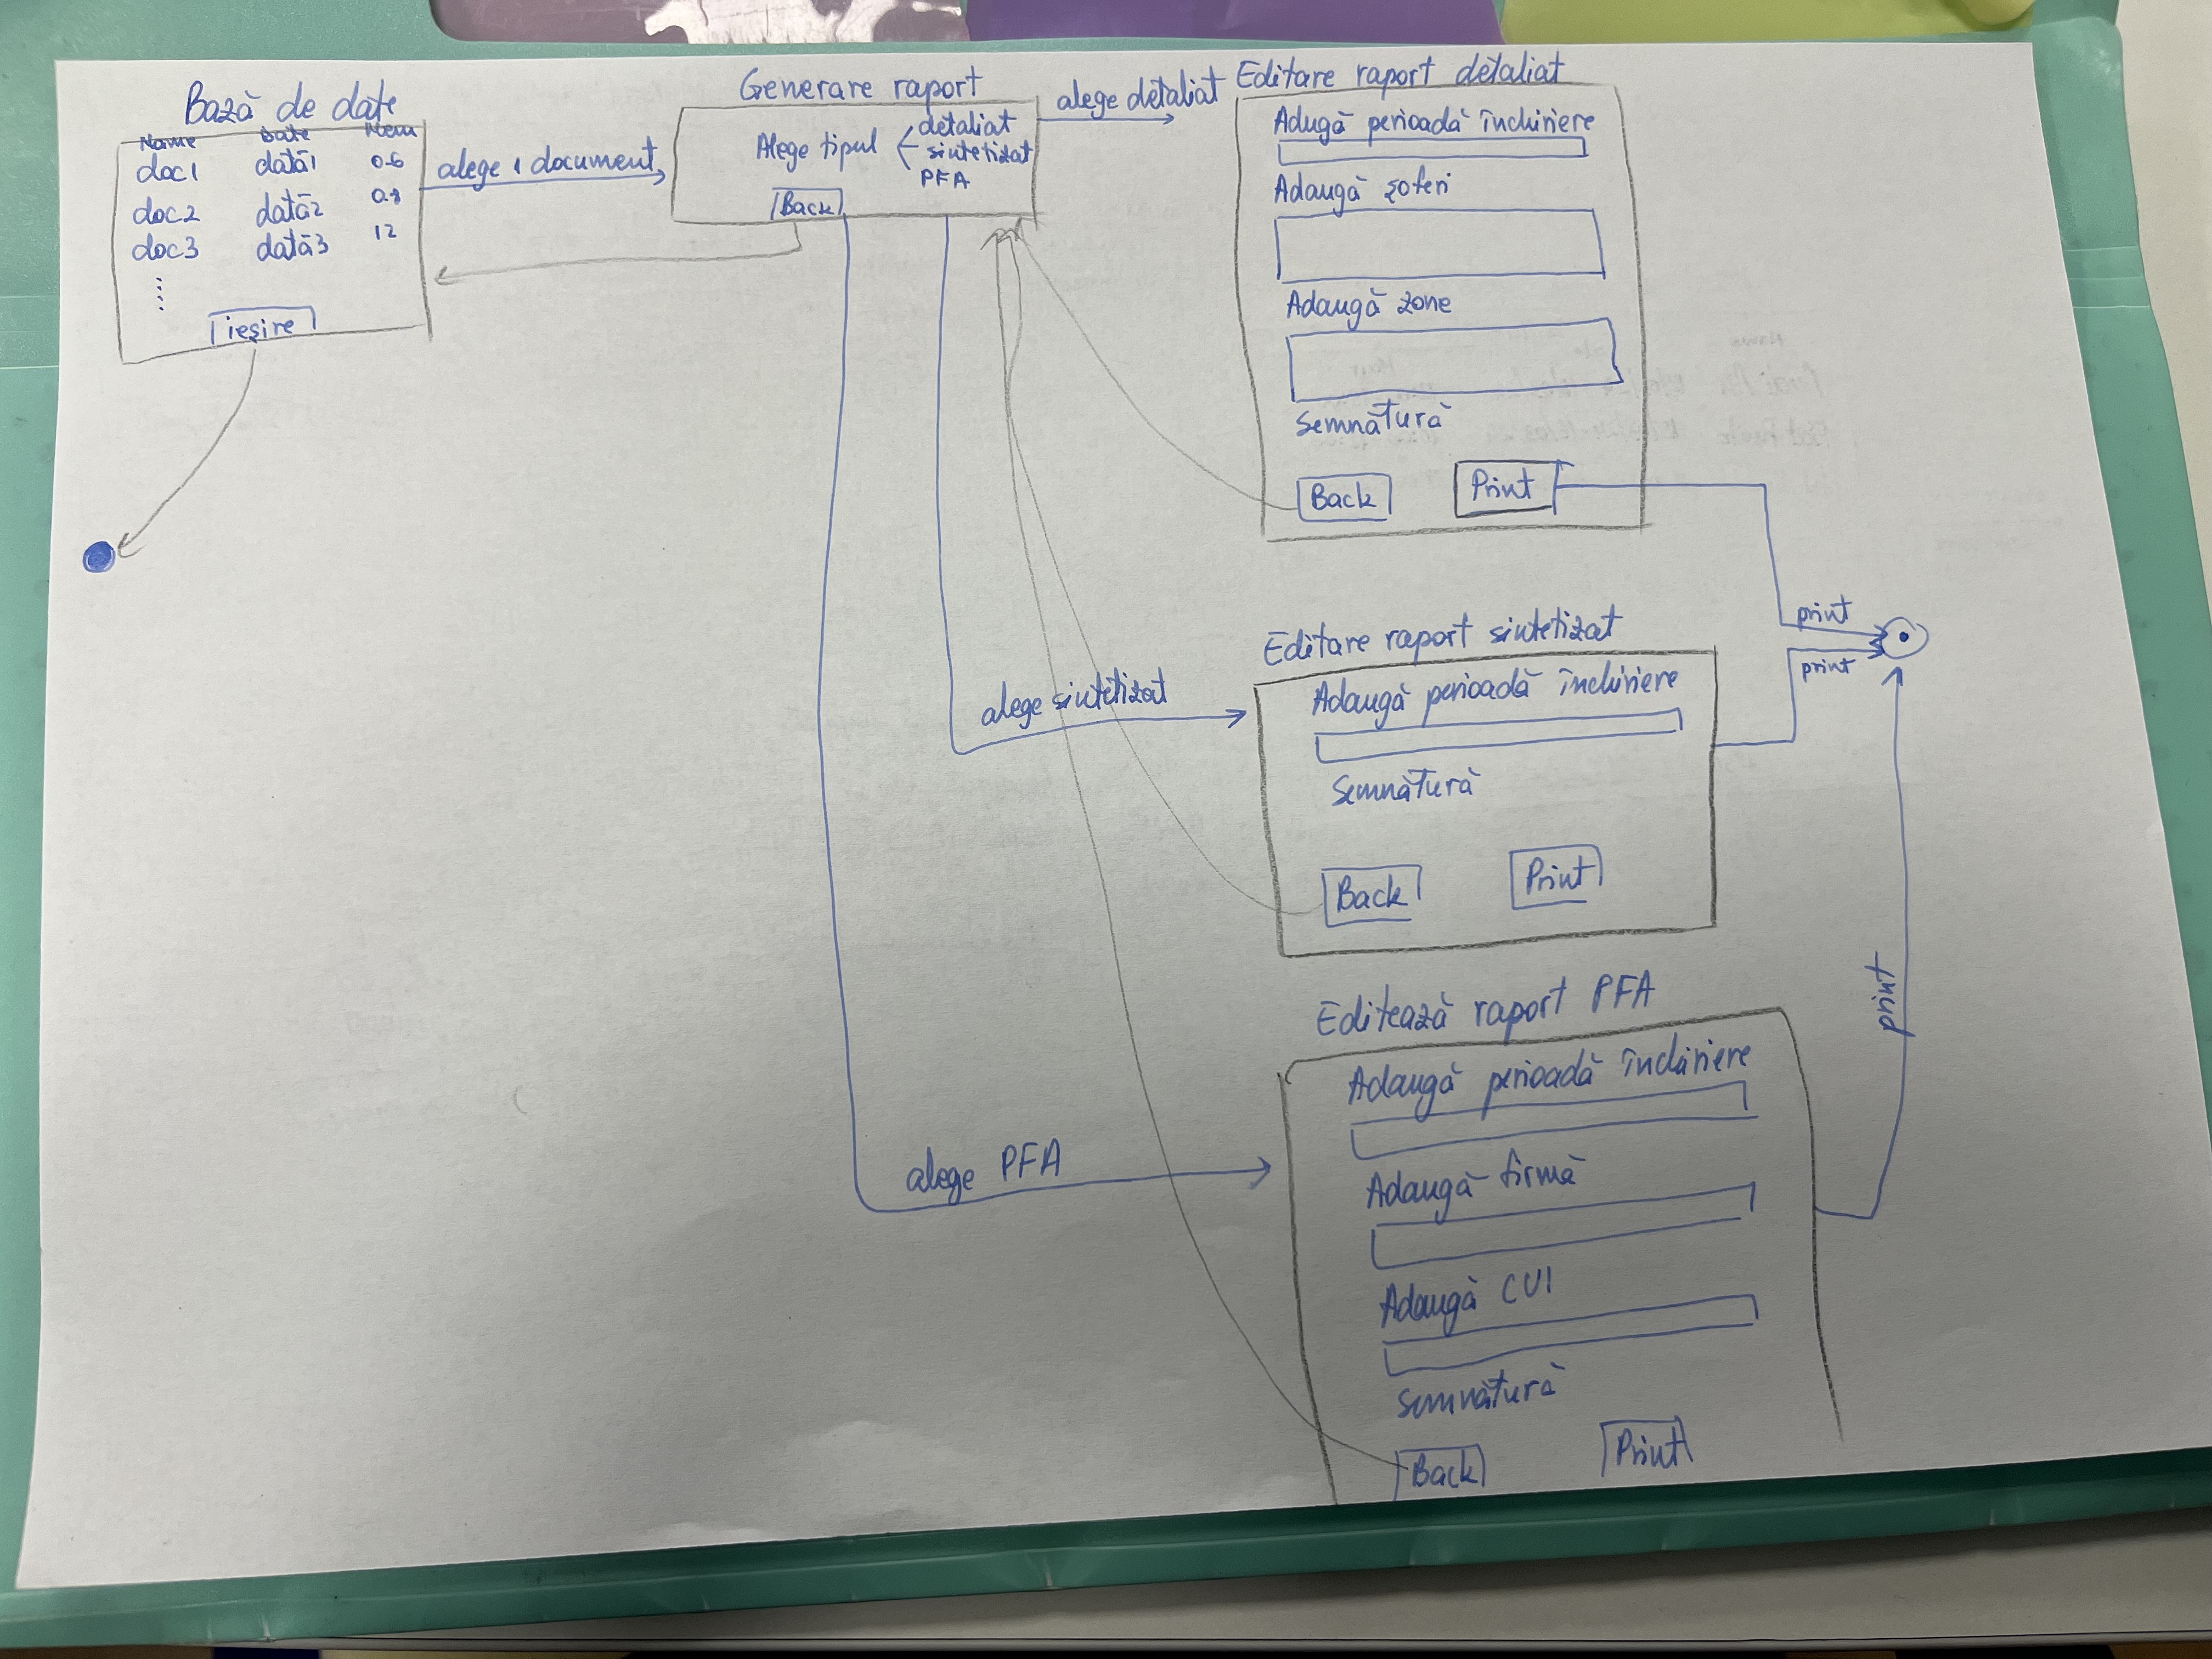 Bază de date
Name Date Mem
doc1 dată1 0.6
doc2 dată2 0.8
doc3 dată3 12
⋮
ieșire
alege 1 document
Generare raport
Alege tipul
detaliat
sintetizat
PFA
Back
alege detaliat
alege sintetizat
alege PFA
Editare raport detaliat
Adaugă perioadă închiriere
Adaugă șoferi
Adaugă zone
Semnătură
Back Print
print
Editare raport sintetizat
Adaugă perioadă închiriere
Semnătură
Back Print
print
Editează raport PFA
Adaugă perioadă închiriere
Adaugă firmă
Adaugă CUI
Semnătură
Back Print
print